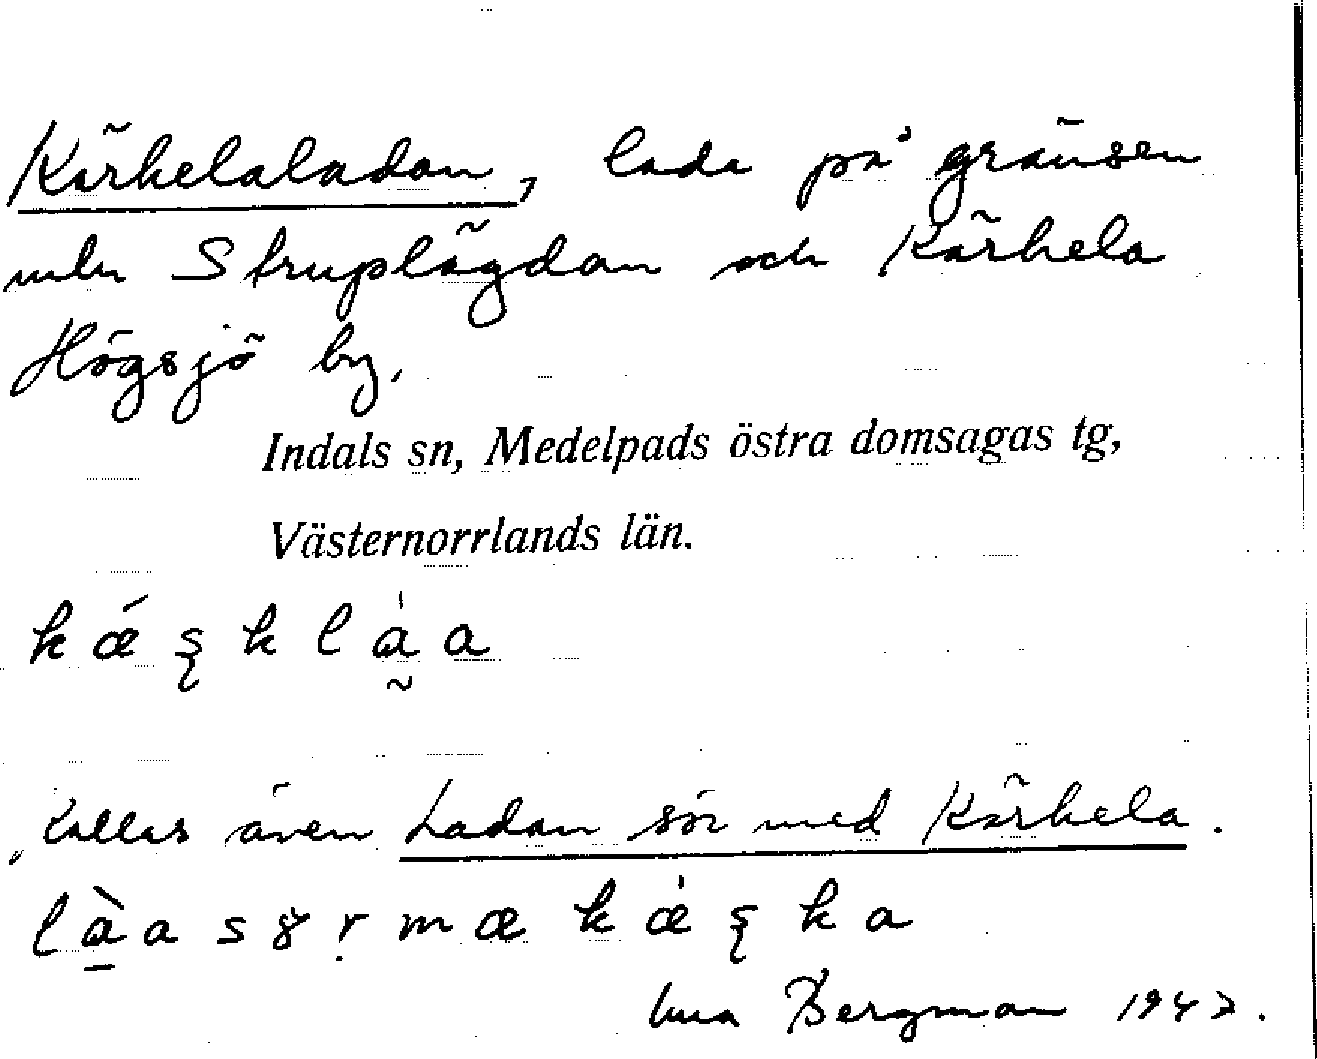 Kärkelaladan, lada på gränsen
mln Struplägdan och Kärkela
Högsjö by.
Indals sn, Medelpads östra domsagas tg,
Västernorrlands län.
Kallas även Ladan sör med Kärkela.
Bergman 1947.